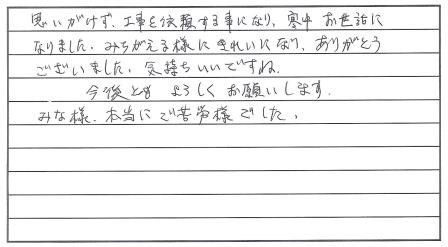 思いがけず、工事を依頼する事になり、寒中 お世話に
なりました. みちがえる様に きれいになり、ありがとう
ございました. 気持ちいいですね.
今後とも よろしく お願いします.
みな様、本当に ご苦労様でした.